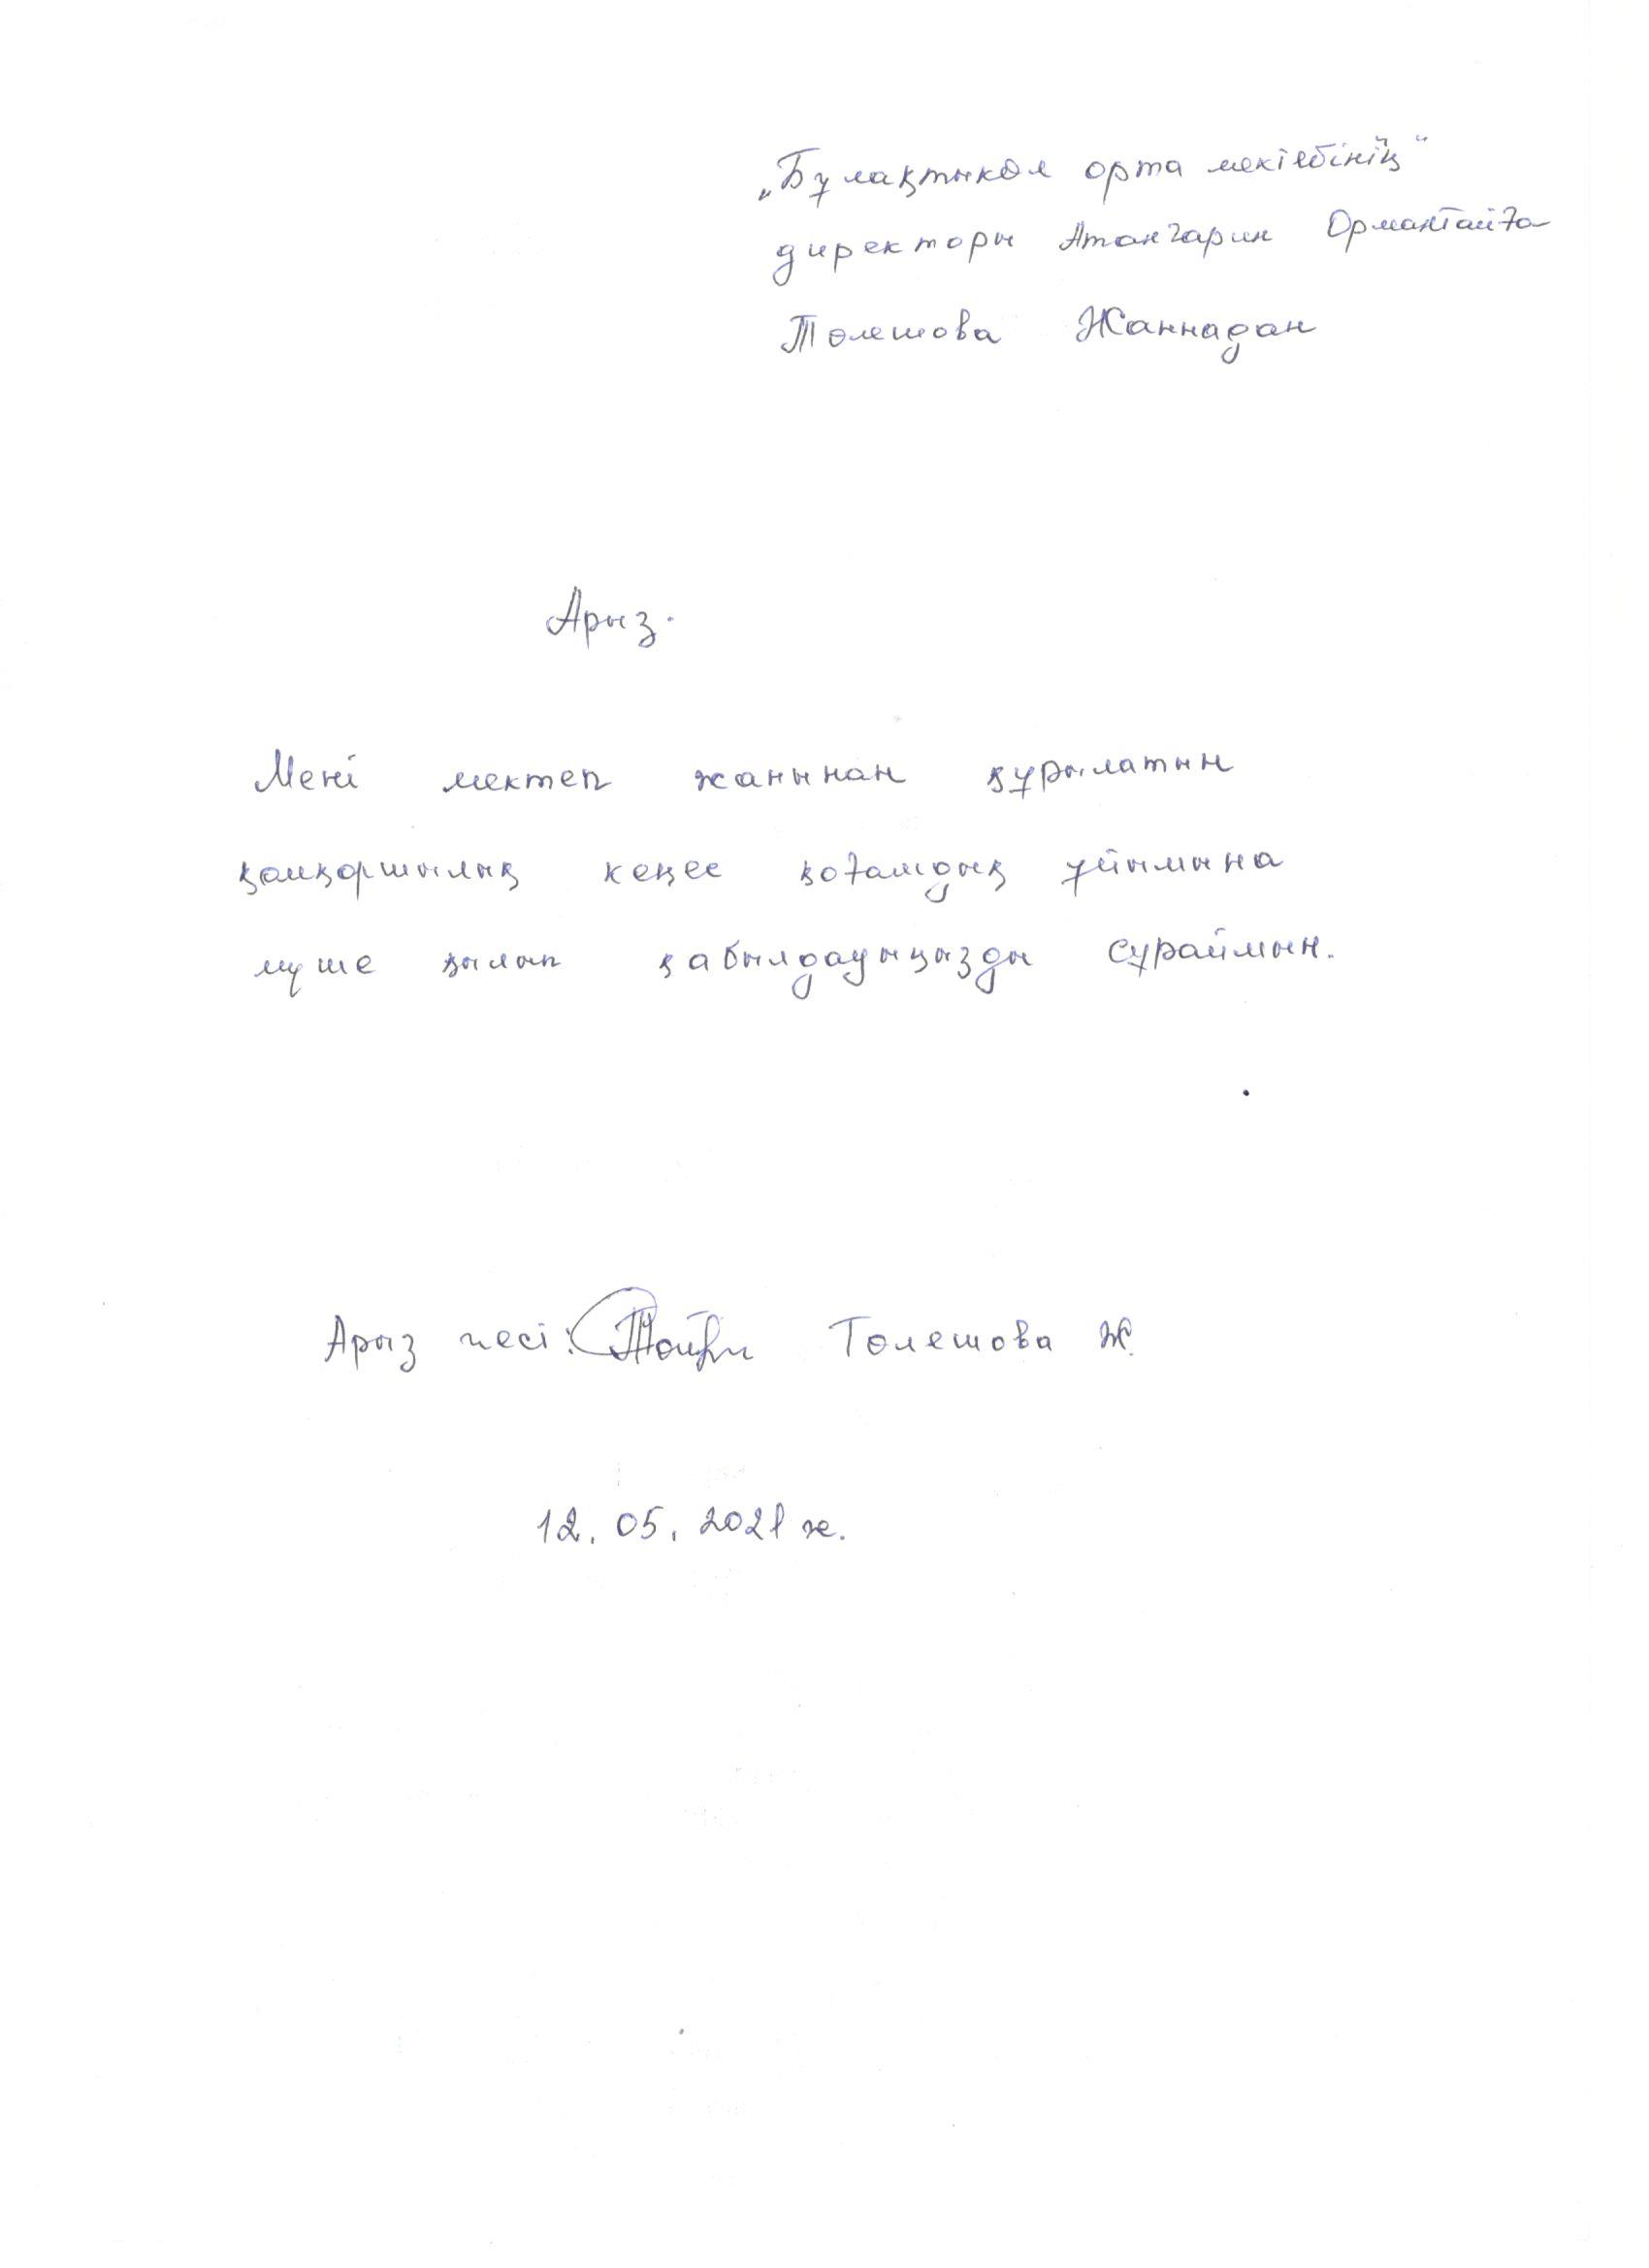 „Бұлақтыкөл орта мектебінің“
директоры Атангарин Ормантайға
Төлешова Жаннадан
Арыз.
Мені мектеп жанынан құрылатын
қамқоршылық кеңес қоғамдық ұйымына
мүше қылып қабылдауыңызды сұраймын.
Арыз иесі: Төлешова Ж.
12. 05. 2021 ж.